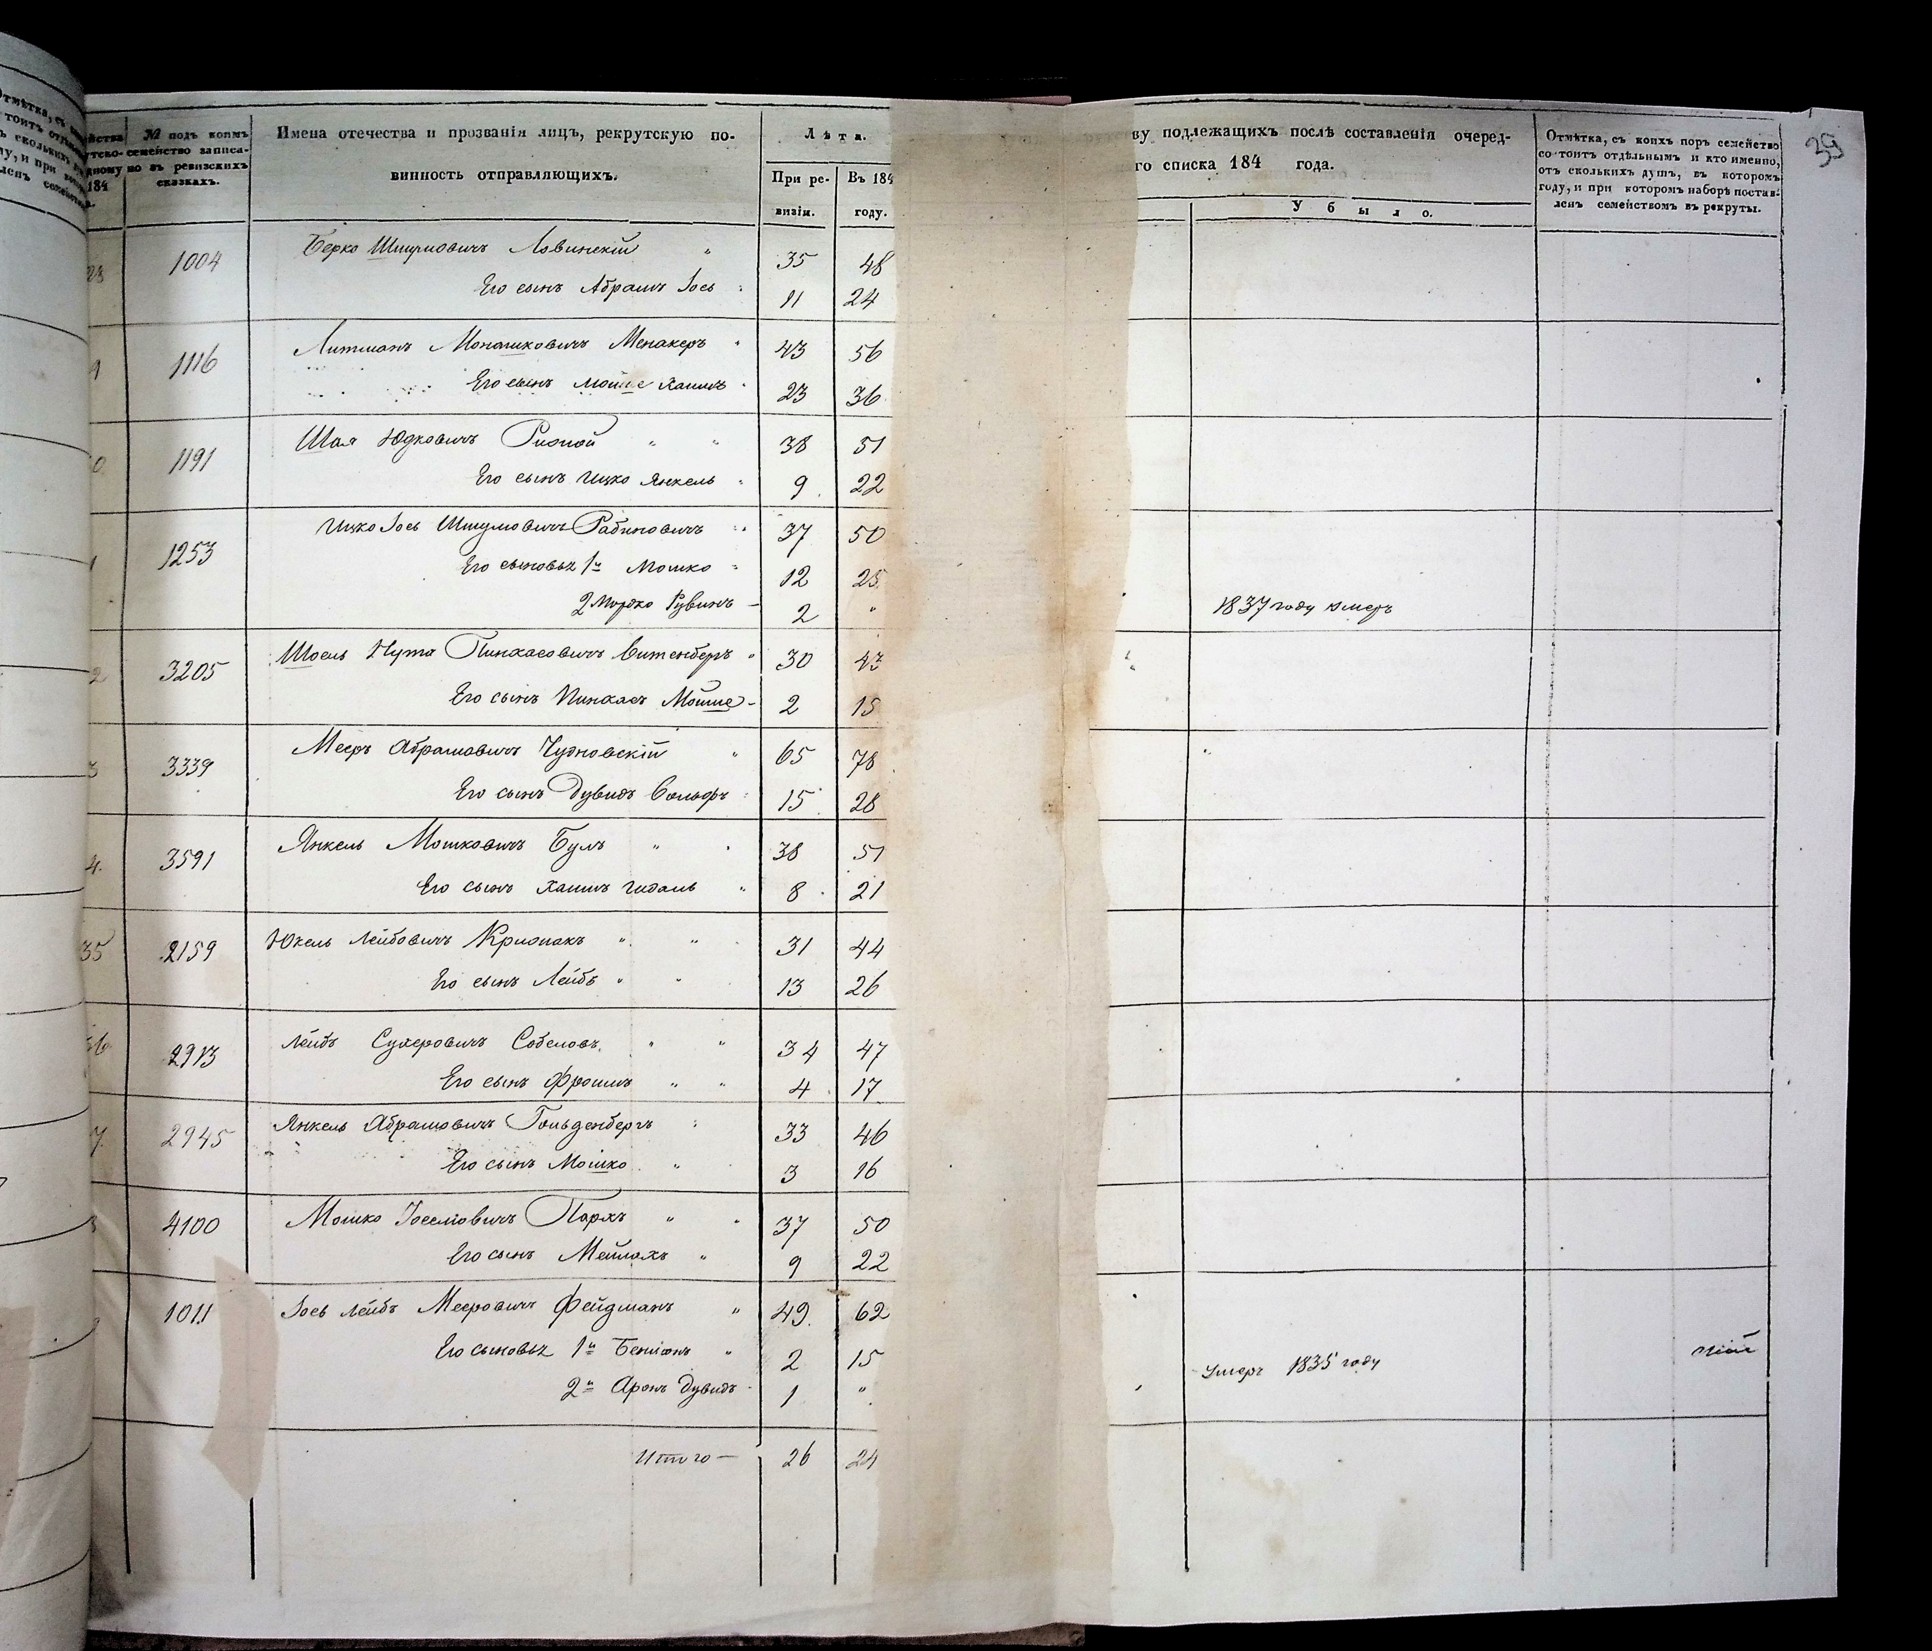 № подъ коимъ
семейство записа-
но въ ревизскихъ
сказкахъ.
Имена отечества и прозванія лицъ, рекрутскую по-
винность отправляющихъ.
Лѣта.
При ре-
визіи.
Въ 184
году.
ву подлежащихъ послѣ составленія очеред-
го списка 184 года.
Убыло.
Отмѣтка, съ коихъ поръ семейство
состоитъ отдѣльнымъ и кто именно,
отъ сколькихъ душъ, въ которомъ
году, и при которомъ наборѣ постав-
ленъ семействомъ въ рекруты.
39
1004 Берко Шмулиовичъ Ловинскій " 35 48
Его сынъ Абрамъ Іось 11 24
1116 Литманъ Монашковичъ Менакеръ 43 56
Его сынъ Мойше Хаимъ 23 36
1191 Шая Юдковичъ " " 38 51
Его сынъ Ицко Янкель 9 22
1253 Ицко Іось Шмулиовичъ Рабиновичъ 37 50
Его сыновья 1й Мошко 12 25
2 Мордко Рувинъ — 2 " 1837 году умеръ
3205 Шоель Нута Пинхасовичъ Витенберъ " 30 43
Его сынъ Пинхасъ Мойше — 2 15
3339 Мееръ Абрамовичъ Чудновскій " 65 78
Его сынъ Дувидъ Вольфъ 15 28
3591 Янкель Мошковичъ Булъ " 38 51
Его сынъ Хаимъ Гидаль " 8 21
35 2159 Юкель Лейбовичъ " " 31 44
Его сынъ Лейбъ " 13 26
2913 Лейбъ Сухеровичъ Собеловъ " " 34 47
Его сынъ Фроимъ " " 4 17
2945 Янкель Абрамовичъ Гольденбергъ 33 46
Его сынъ Мошко " 3 16
4100 Мошко Іоселіовичъ Пархъ " " 37 50
Его сынъ Мейлахъ " 9 22
1011 Іось Лейбъ Мееровичъ Фейдманъ " 49 62
Его сыновья 1й Беніонъ " 2 15
2й Аронъ Дувидъ 1 " Умеръ 1835 году
Итого — 26 24